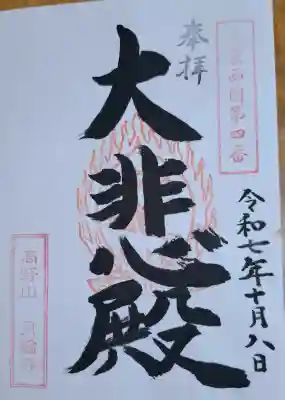 奉拝
西国第四番
大悲心殿
令和七年十月八日
高野山